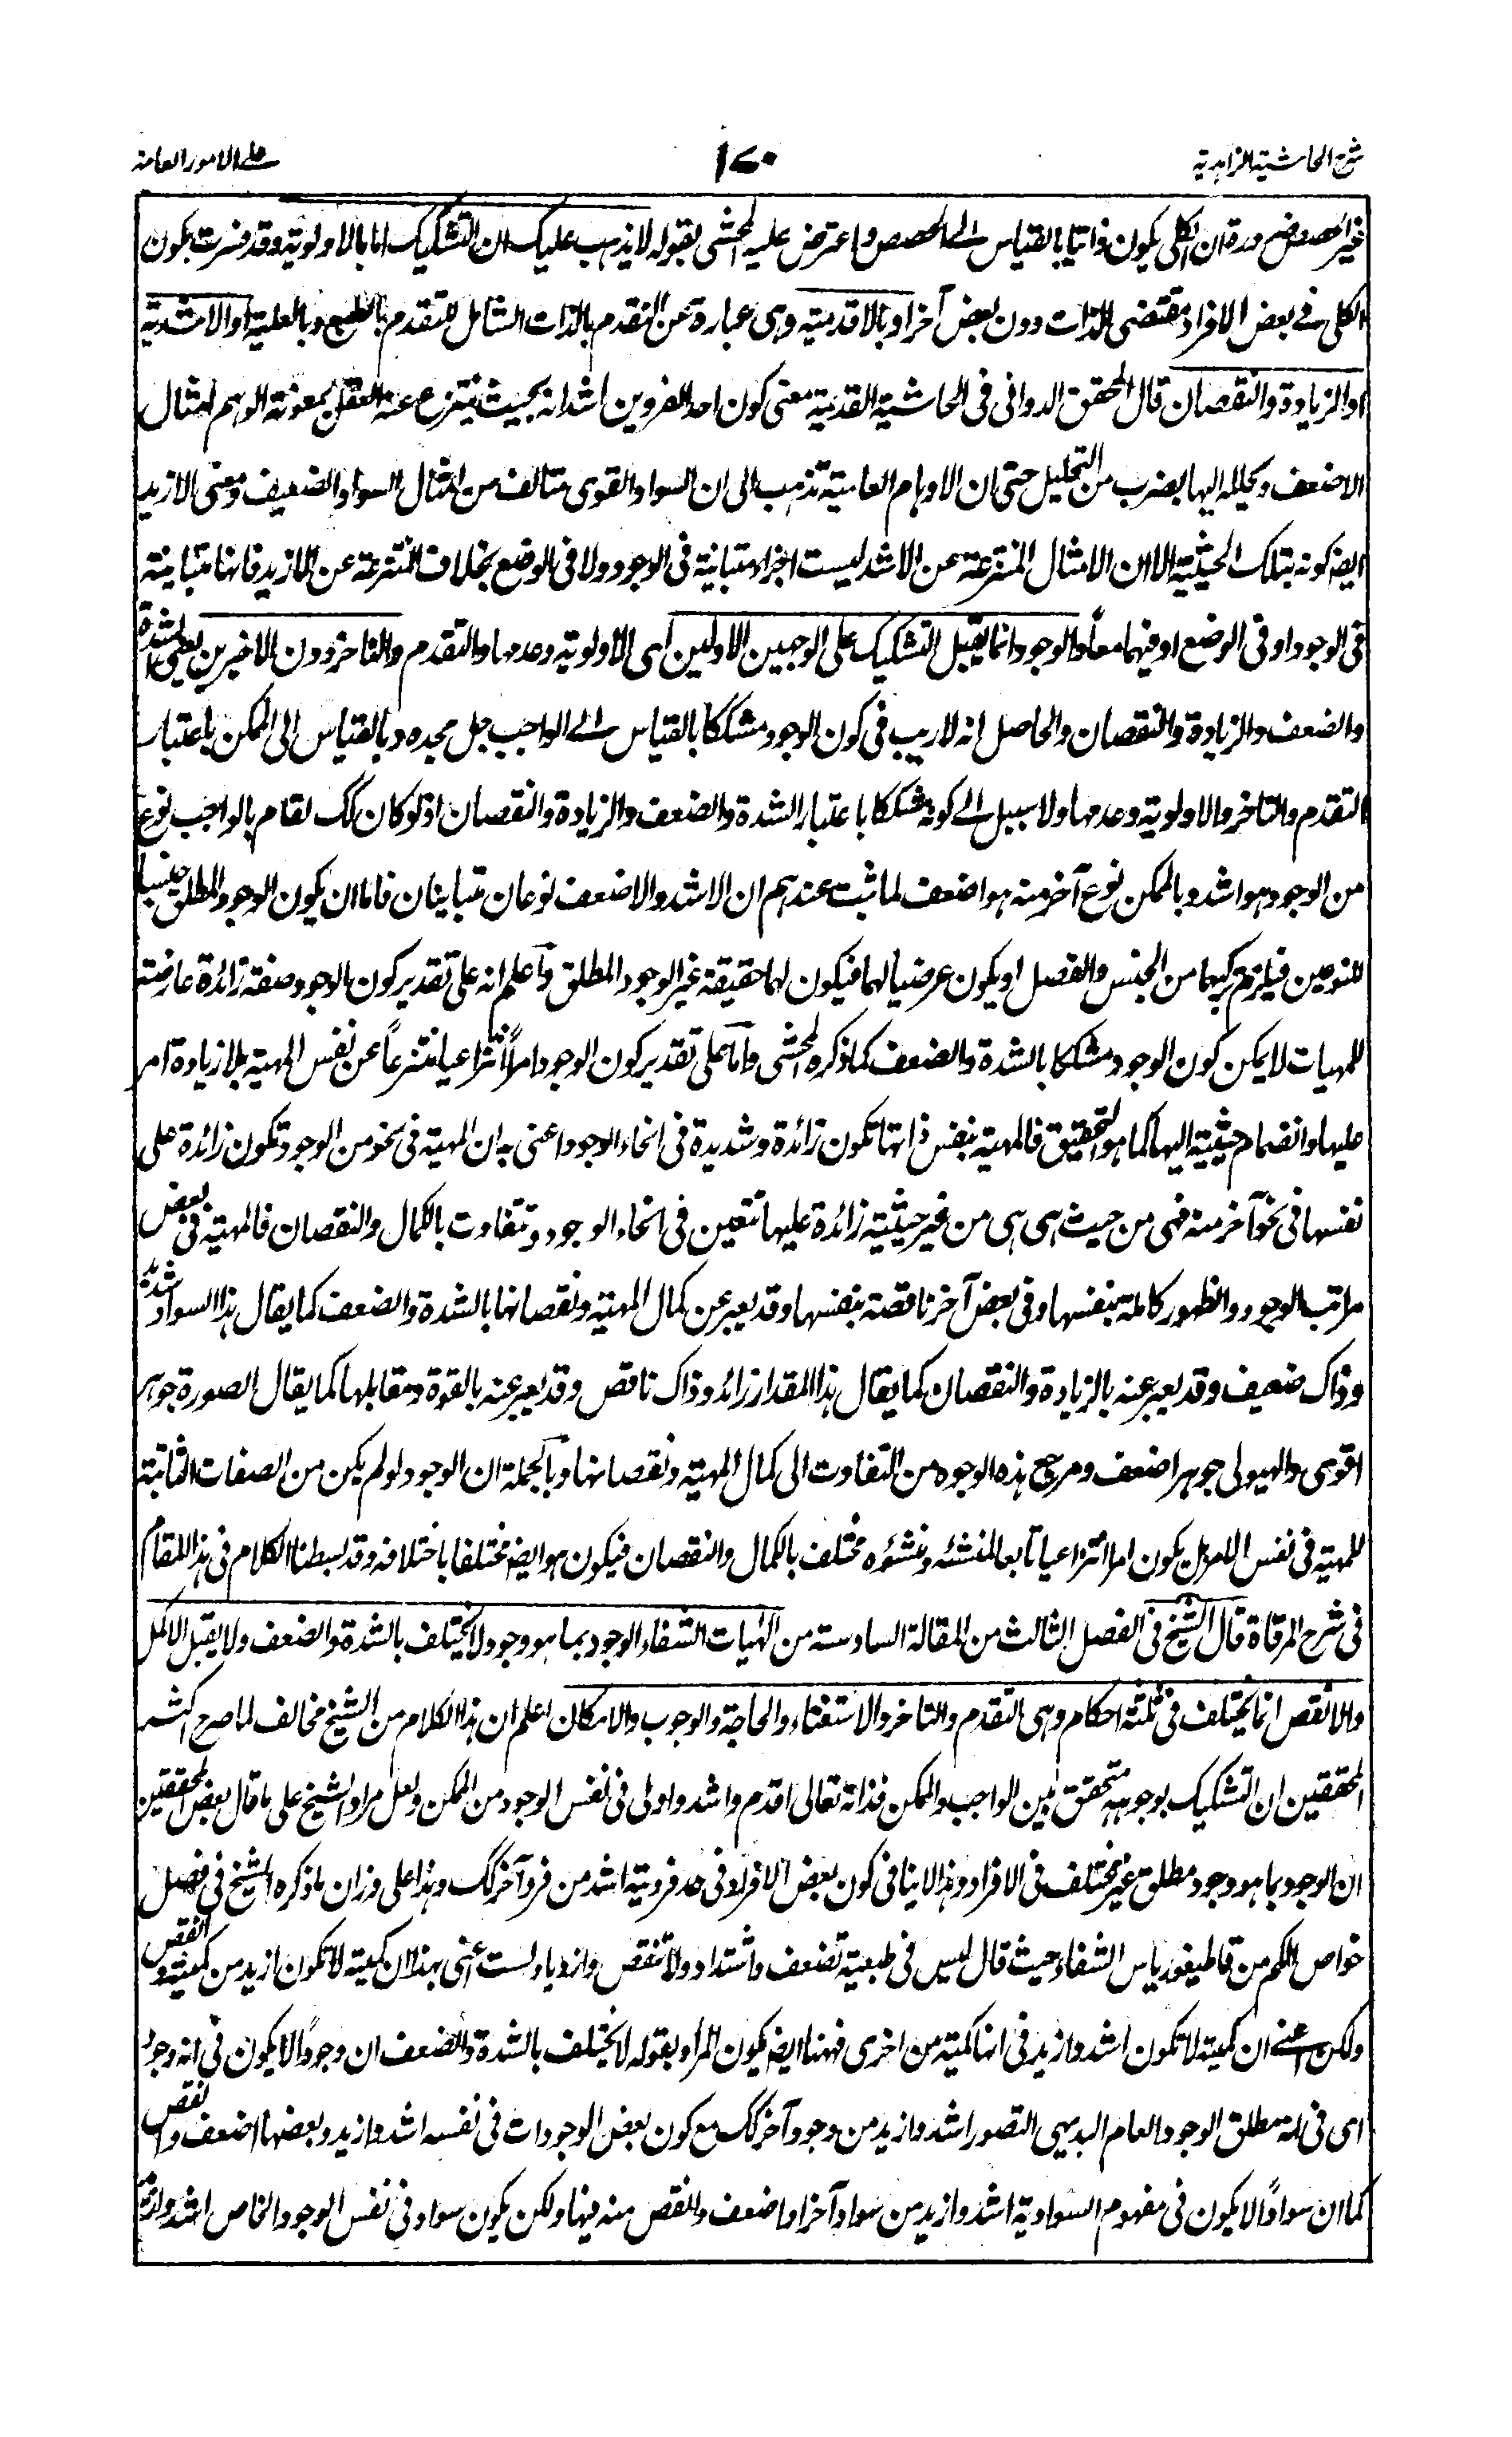 شرح الحاشية الزاهدية
١٧٠
على الامور العامة
غير الحصص ضرورة ان الكلى يكون ذاتيا بالقياس الے الحصص واعترض عليه المحشى بقوله لا يذهب عليك ان التشكيك اما بالاولوية وقد فسرت بكون
الكلى فے بعض الافراد مقتضى الذات دون بعض آخر او بالاقدمية وہى عبارة عن التقدم بالذات الشامل للتقدم بالطبع وبالعلية او الاشدية
او الزيادة والنقصان قال المحقق الدوانى فى الحاشية القديمة معنى كون احد الفردين اشد انه بحيث ينتزع عنه العقل بمعونة الوہم امثال
الاضعف ويحلله اليها بضرب من التحليل حتى ان الاوہام العامية تذہب الى ان السواد القوى متالف من امثال السواد الضعيف ومعنى الازيد
ايضا كونه بتلك الحيثية الا ان الامثال المنتزعة عن الاشد ليست اجزاء متباينة فى الوجود ولا فى الوضع بخلاف المنتزعة عن الازيد فانہا متباينة
فى الوجود او فى الوضع او فيہما معاً والوجود انما يقبل التشكيك على الوجہين الاولين اى الاولوية وعدمہا والتقدم والتاخر دون الاخيرين يعنى الشدة
والضعف والزيادة والنقصان والحاصل انه لا ريب فى كون الوجود مشككا بالقياس الے الواجب جل مجده وبالقياس الى الممكن باعتبار
التقدم والتاخر والاولوية وعدمہا ولا سبيل الے كونه مشككا باعتبار الشدة والضعف والزيادة والنقصان اذ لو كان كك لقام بالواجب نوع
من الوجود ہو اشد وبالممكن نوع آخر منه ہو اضعف لما ثبت عندہم ان الاشد والاضعف نوعان متباينان فاما ان يكون الوجود المطلق جنسيا
للنوعين فيلزم تركبہما من الجنس والفصل او يكون عرضيا لہما فيكون لہما حقيقة غير الوجود المطلق واعلم انه على تقدير كون الوجود صفة زائدة عارضة
للمہيات لا يمكن كون الوجود مشككا بالشدة والضعف كما ذكره المحشى واما على تقدير كون الوجود امراً انتزاعيا منتزعاً عن نفس المہية بلا زيادة امر
عليہا وانضمام حيثية اليہا كما ہو التحقيق فالمہية بنفس ذاتہا تكون زائدة وشديدة فى انحاء الوجود اعنى به ان المہية فى نحو من الوجود تكون زائدة على
نفسہا فى نحو آخر منه فہى من حيث ہى ہى من غير حيثية زائدة عليہا تتعين فى انحاء الوجود وتتفاوت بالكمال والنقصان فالمہية فى بعض
مراتب الوجود والظہور كاملة بنفسہا وفى بعض آخر ناقصة بنفسہا وقد يعبر عن كمال المہية ونقصانہا بالشدة والضعف كما يقال ہذا السواد شديد
وذاك ضعيف وقد يعبر عنه بالزيادة والنقصان كما يقال ہذا المقدار زائد وذاك ناقص وقد يعبر عنه بالقوة ومقابلہا كما يقال الصورة جوہر
اقوى والہيولى جوہر اضعف ومرجع ہذه الوجوه من التفاوت الى كمال المہية ونقصانہا وبالجملة ان الوجود لو لم يكن من الصفات الثابتة
للمہية فى نفس الامر بل يكون امرا انتزاعيا تابعا لمنشئه ومنشؤه مختلف بالكمال والنقصان فيكون ہو ايضا مختلفا باختلافه وقد بسطنا الكلام فى ہذا المقام
فى شرح المرقاة قال الشيخ فى الفصل الثالث من المقالة السادسة من الہيات الشفاء الوجود بما ہو وجود لا يختلف بالشدة والضعف ولا يقبل الاكمل
والانقص انما يختلف فى ثلثة احكام وہى التقدم والتاخر والاستغناء والحاجة والوجوب والامكان اعلم ان ہذا الكلام من الشيخ مخالف لما صرح اكثر
المحققين ان التشكيك بوجوہه متحقق بين الواجب والممكن فذاته تعالى اقدم واشد واولى فى نفس الوجود من الممكن ولعل مراد الشيخ على ما قال بعض المحققين
ان الوجود بما ہو وجود مطلق غير مختلف فى الافراد وہذا لا ينافى كون بعض الافراد فى حد فرديته اشد من فرد آخر كك وہذا على وزان ما ذكره الشيخ فى فصل
خواص الكم من قاطيغورياس الشفاء حيث قال ليس فى طبيعته تضعف واشتداد ولا تنقص وازدياد لست اعنى بہذا ان كمية لا تكون ازيد من كمية وانقص
ولكن اعنے ان كمية لا تكون اشد وازيد فى انہا كمية من اخرى فہہنا ايضا يكون المراد بقوله لا يختلف بالشدة والضعف ان وجوداً لا يكون فى انه وجود
اى فى انه مطلق الوجود العام البديہى التصور اشد وازيد من وجود آخر كك مع كون بعض الوجودات فى نفسه اشد وازيد وبعضہا اضعف وانقص
كما ان سواداً لا يكون فى مفہوم السوادية اشد وازيد من سواد آخر او اضعف وانقص منه فيہا ولكن يكون سواد فى نفس الوجود الخاص اشد وازيد